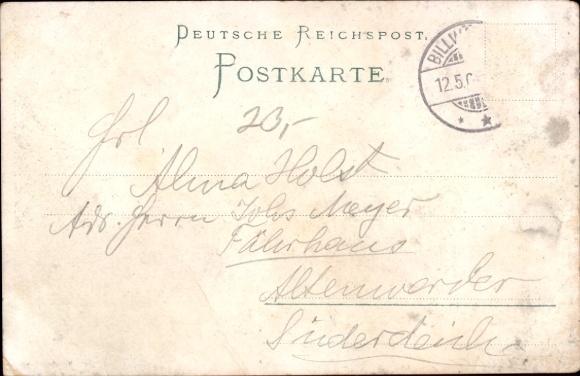 DEUTSCHE REICHSPOST.
POSTKARTE
BILLW
12.5.0
Frl 23,-
Alma Holst
Adr. Herrn Johs Meyer
Fährhaus
Altenwerder
Süderdeich